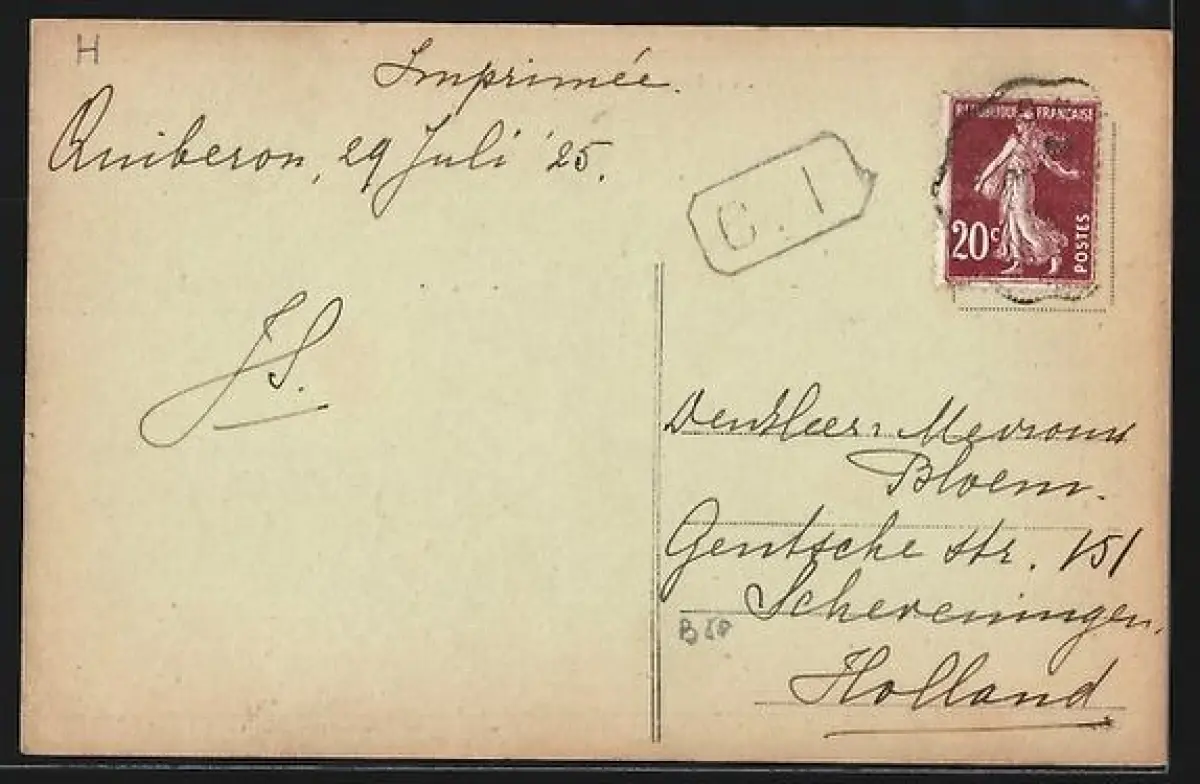 H
Imprimée.
Quiberon, 29 Juli '25.
RÉPUBLIQUE FRANÇAISE
20c
POSTES
J.S.
Mevrouw
Bloem.
Gentsche str. 151
Scheveningen,
Holland